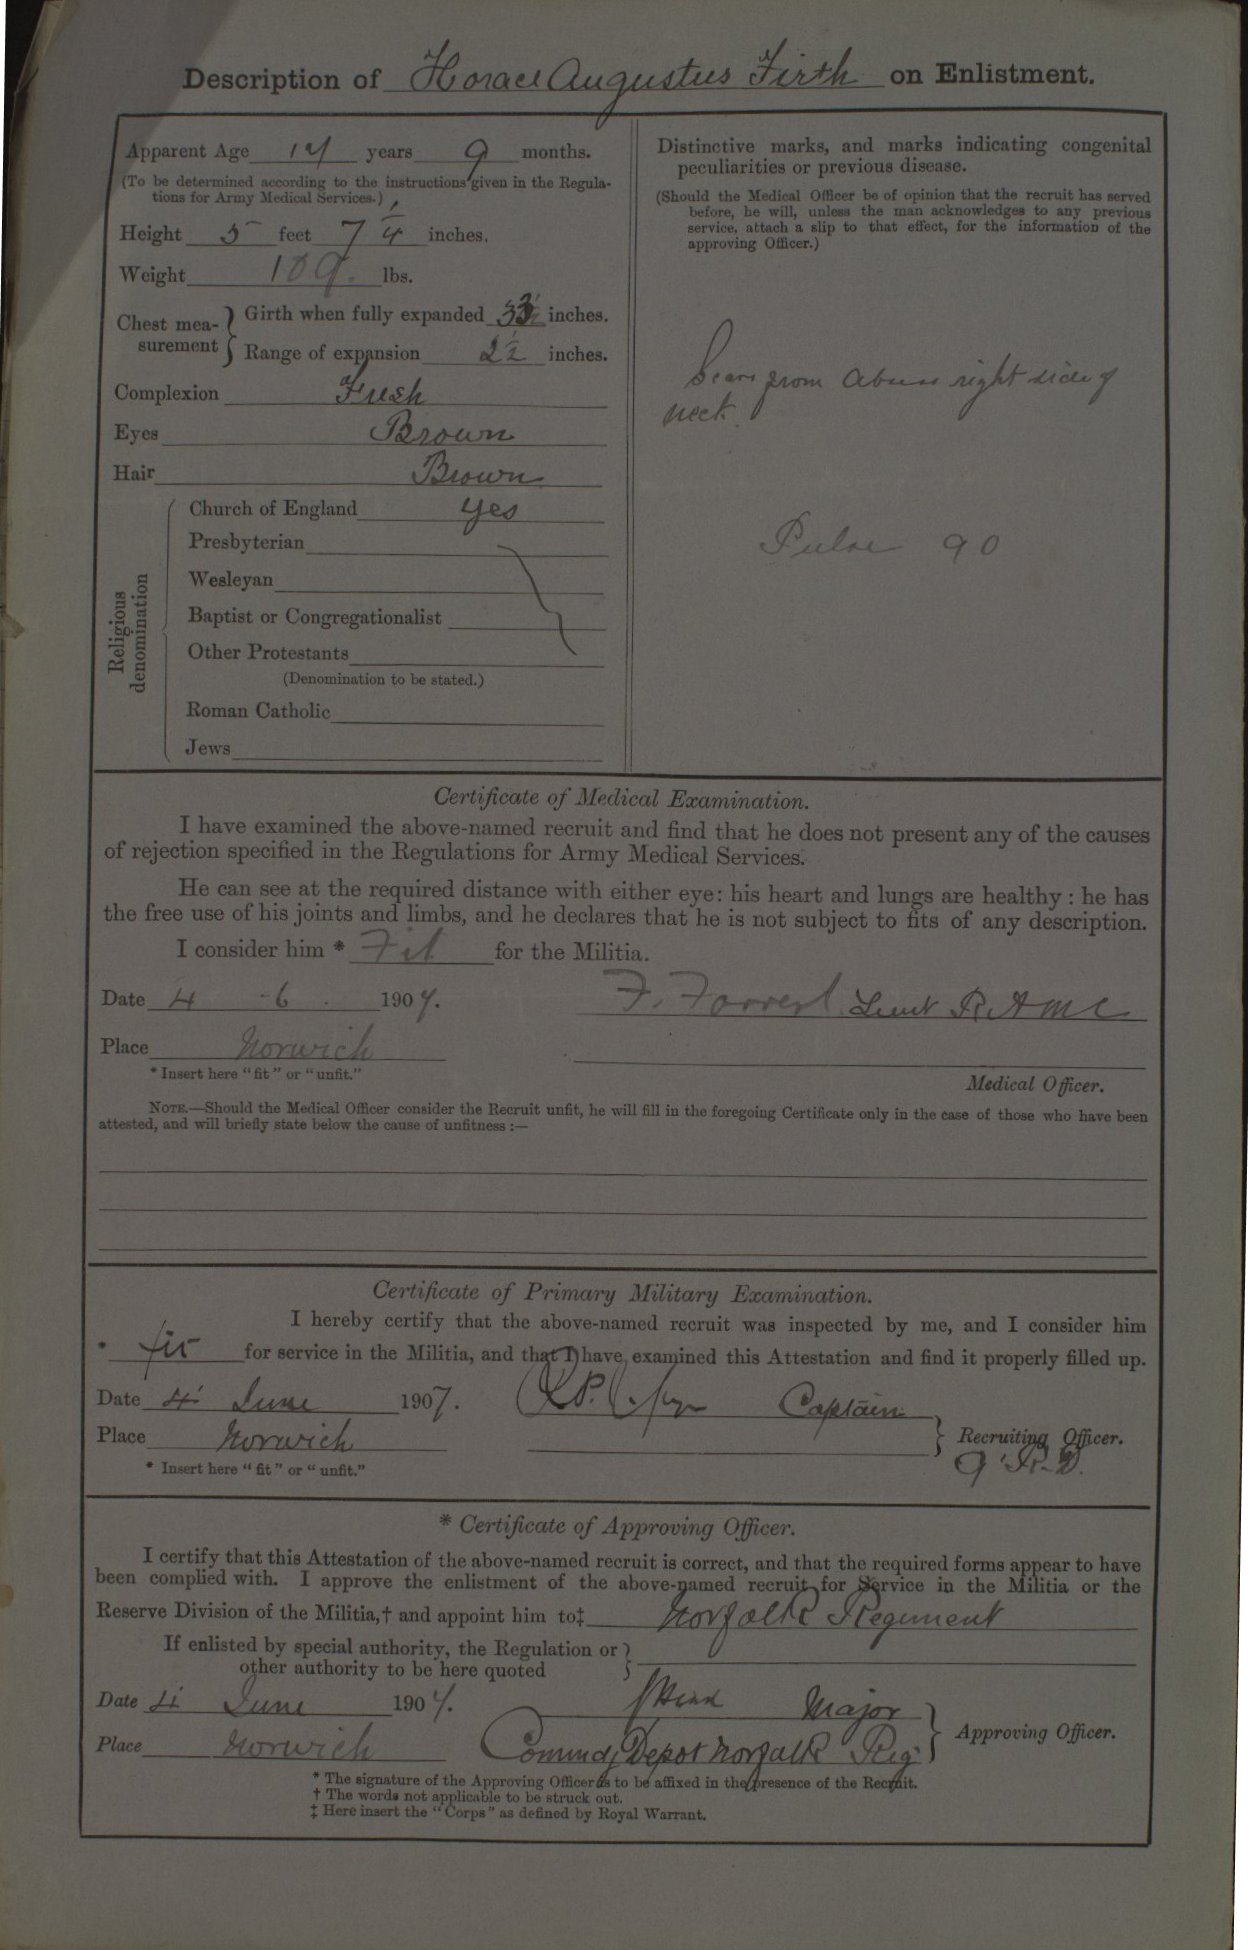 Description of Horace Augustus Firth on Enlistment.
Apparent Age 17 years 9 months.
(To be determined according to the instructions given in the Regula-
tions for Army Medical Services.)
Height 5 feet 7 1/4 inches.
Weight 109. lbs.
Chest mea-
surement
Girth when fully expanded 33 1/2 inches.
Range of expansion 2 1/2 inches.
Complexion Fresh
Eyes Brown
Hair Brown
Religious
denomination
Church of England yes
Presbyterian
Wesleyan
Baptist or Congregationalist
Other Protestants
(Denomination to be stated.)
Roman Catholic
Jews
Distinctive marks, and marks indicating congenital
peculiarities or previous disease.
(Should the Medical Officer be of opinion that the recruit has served
before, he will, unless the man acknowledges to any previous
service, attach a slip to that effect, for the information of the
approving Officer.)
Scars from abscess right side of
neck.
Pulse 90
Certificate of Medical Examination.
I have examined the above-named recruit and find that he does not present any of the causes
of rejection specified in the Regulations for Army Medical Services.
He can see at the required distance with either eye: his heart and lungs are healthy: he has
the free use of his joints and limbs, and he declares that he is not subject to fits of any description.
I consider him * Fit for the Militia.
Date 4 - 6 . 1907.
F. Forrest Lieut R.A.M.C
Place Norwich
* Insert here "fit" or "unfit."
Medical Officer.
NOTE.—Should the Medical Officer consider the Recruit unfit, he will fill in the foregoing Certificate only in the case of those who have been
attested, and will briefly state below the cause of unfitness:—
Certificate of Primary Military Examination.
I hereby certify that the above-named recruit was inspected by me, and I consider him
* fit for service in the Militia, and that I have examined this Attestation and find it properly filled up.
Date 4 June 1907. Captain
Place Norwich
Recruiting Officer.
9 R.D.
* Insert here "fit" or "unfit."
* Certificate of Approving Officer.
I certify that this Attestation of the above-named recruit is correct, and that the required forms appear to have
been complied with. I approve the enlistment of the above-named recruit for Service in the Militia or the
Reserve Division of the Militia,† and appoint him to‡ Norfolk Regiment
If enlisted by special authority, the Regulation or
other authority to be here quoted
Date 4 June 1907. Major
Place Norwich Commdg Depot Norfolk Reg
Approving Officer.
* The signature of the Approving Officer is to be affixed in the presence of the Recruit.
† The words not applicable to be struck out.
‡ Here insert the "Corps" as defined by Royal Warrant.